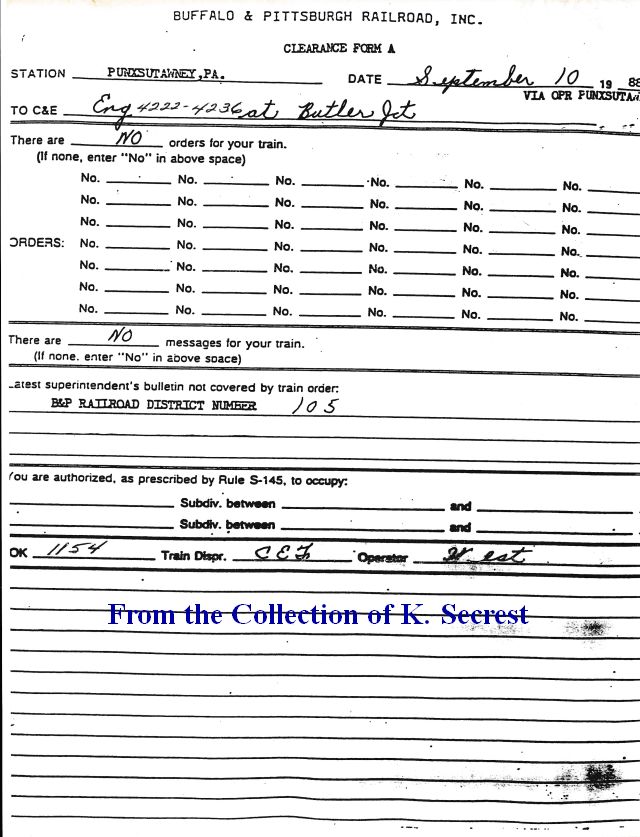 BUFFALO & PITTSBURGH RAILROAD, INC.
CLEARANCE FORM A
STATION PUNXSUTAWNEY,PA. DATE September 10 1988
VIA OPR PUNXSUTA
TO C&E Eng 4222-4236 at Butler Jct
There are NO orders for your train.
(If none, enter "No" in above space)
No. No. No. No. No. No.
No. No. No. No. No. No.
No. No. No. No. No. No.
ORDERS: No. No. No. No. No. No.
No. No. No. No. No. No.
No. No. No. No. No. No.
No. No. No. No. No. No.
There are NO messages for your train.
(If none, enter "No" in above space)
Latest superintendent's bulletin not covered by train order:
B&P RAILROAD DISTRICT NUMBER 105
You are authorized, as prescribed by Rule S-145, to occupy:
Subdiv. between and
Subdiv. between and
OK 1154 Train Dispr. CEF Operator West
From the Collection of K. Secrest